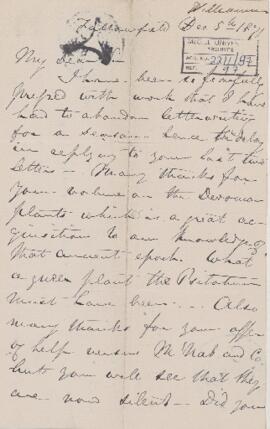 Fallowfield Dec 5th 1871
My dear Sir
I have been so fearfully
pressed with work that I have
had to abandon letterwriting
for a season. hence the delay
in replying to your last two
letters — Many thanks for
your volume on the Devonian
plants which is a great ac-
quisition to our knowledge of
that ancient epoch. What
a queer plant the Psilophyton
must have been... Also
many thanks for your offer
of help versus McNab and Co
but you will see that they
are now silent — Did you